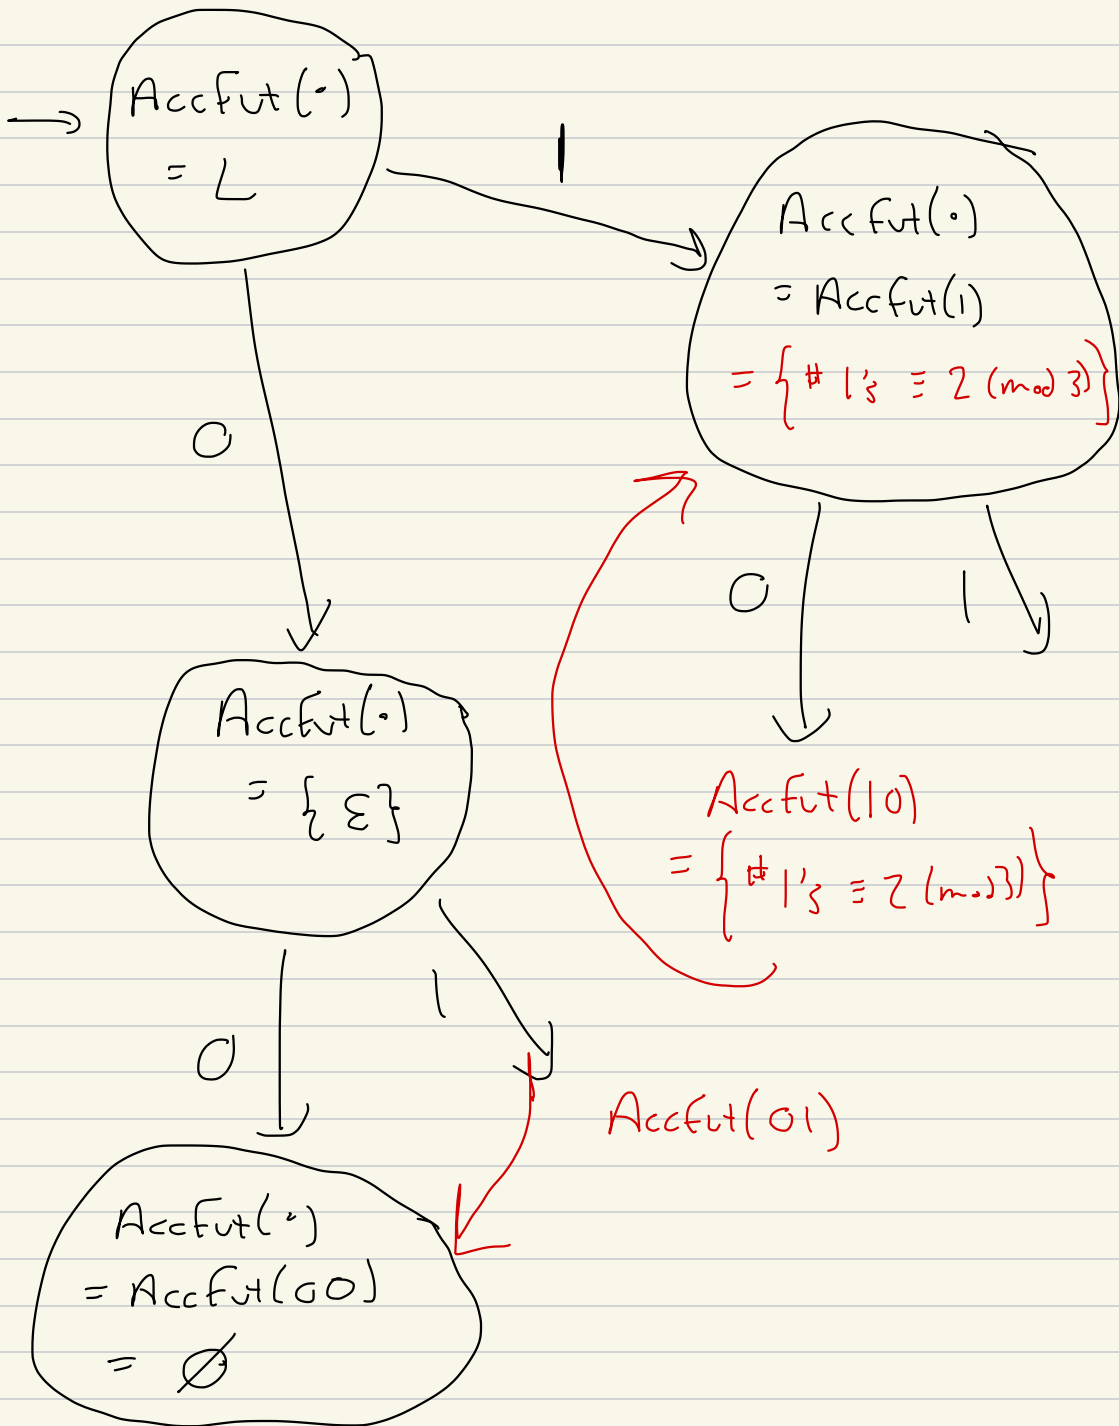 AccFut(·)
= L
1
AccFut(·)
= AccFut(1)
= {# 1's ≡ 2 (mod 3)}
0
0
1
AccFut(·)
= {ε}
AccFut(10)
= {# 1's ≡ 2 (mod 3)}
0
1
AccFut(01)
AccFut(·)
= AccFut(00)
= ∅